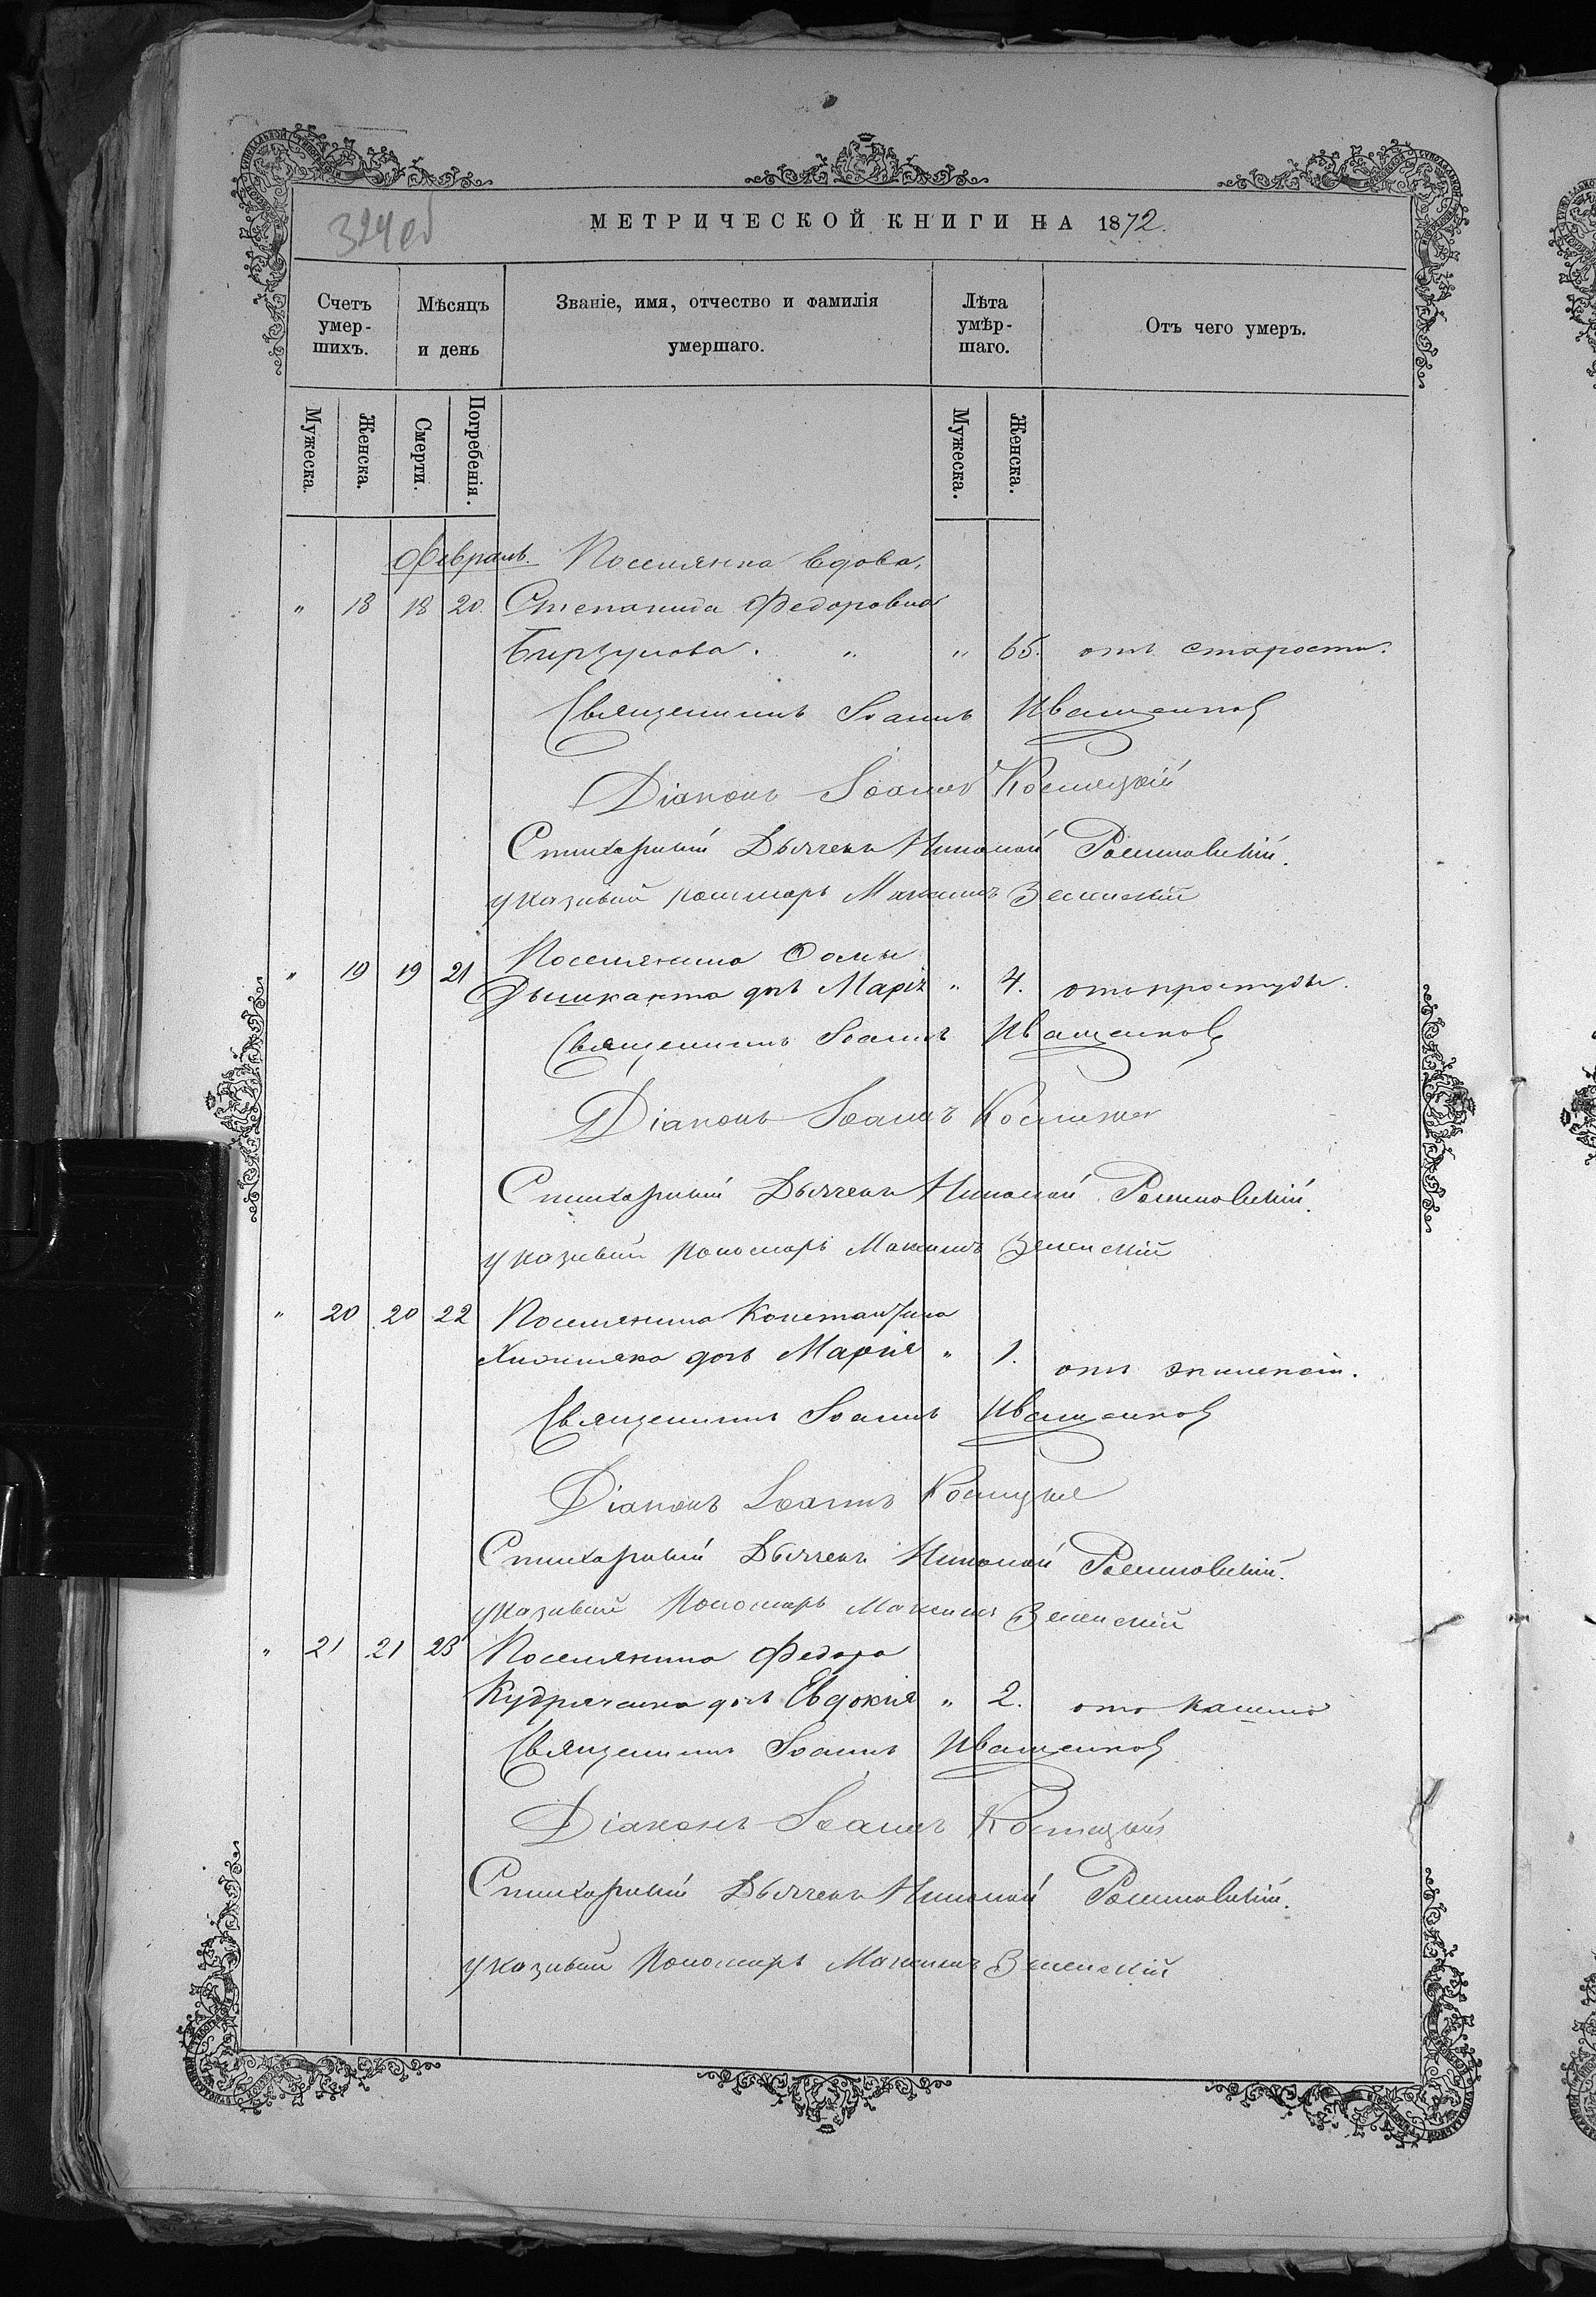 324об
МЕТРИЧЕСКОЙ КНИГИ НА 1872.
Счетъ умер-шихъ.
Мѣсяцъ и день
Званіе, имя, отчество и фамилія умершаго.
Лѣта умѣр-шаго.
Отъ чего умеръ.
Мужеска. Женска. Смерти. Погребенія. Мужеска. Женска.
Февраль. Поселянка вдова,
" 18 18 20. Степанида Федоровна
" " 65. отъ старости.
Священникъ Іоаннъ Иващенковъ
Діаконъ Іоаннъ Косницкій
Стихарный Дьячекъ Николай
указный пономарь Максимъ Зеленскій
" 19 19 21 Поселянина Фомы
Дышканта дочь Марія " 4. отъ простуды.
Священникъ Іоаннъ Иващенковъ
Діаконъ Іоаннъ
Стихарный Дьячекъ Николай
указный пономарь Максимъ Зеленскій
" 20 20 22 Поселянина Константина
дочь Марія " 1. отъ эпилепсіи.
Священникъ Іоаннъ Иващенковъ
Діаконъ Іоаннъ
Стихарный Дьячекъ Николай
указный Пономарь Максимъ Зеленскій
" 21 21 23 Поселянина Федора
Кудряченка дочь Евдокія " 2. отъ кашля
Священникъ Іоаннъ Иващенковъ
Діаконъ Іоаннъ Косницкій
Стихарный Дьячекъ Николай
указный Пономарь Максимъ Зеленскій